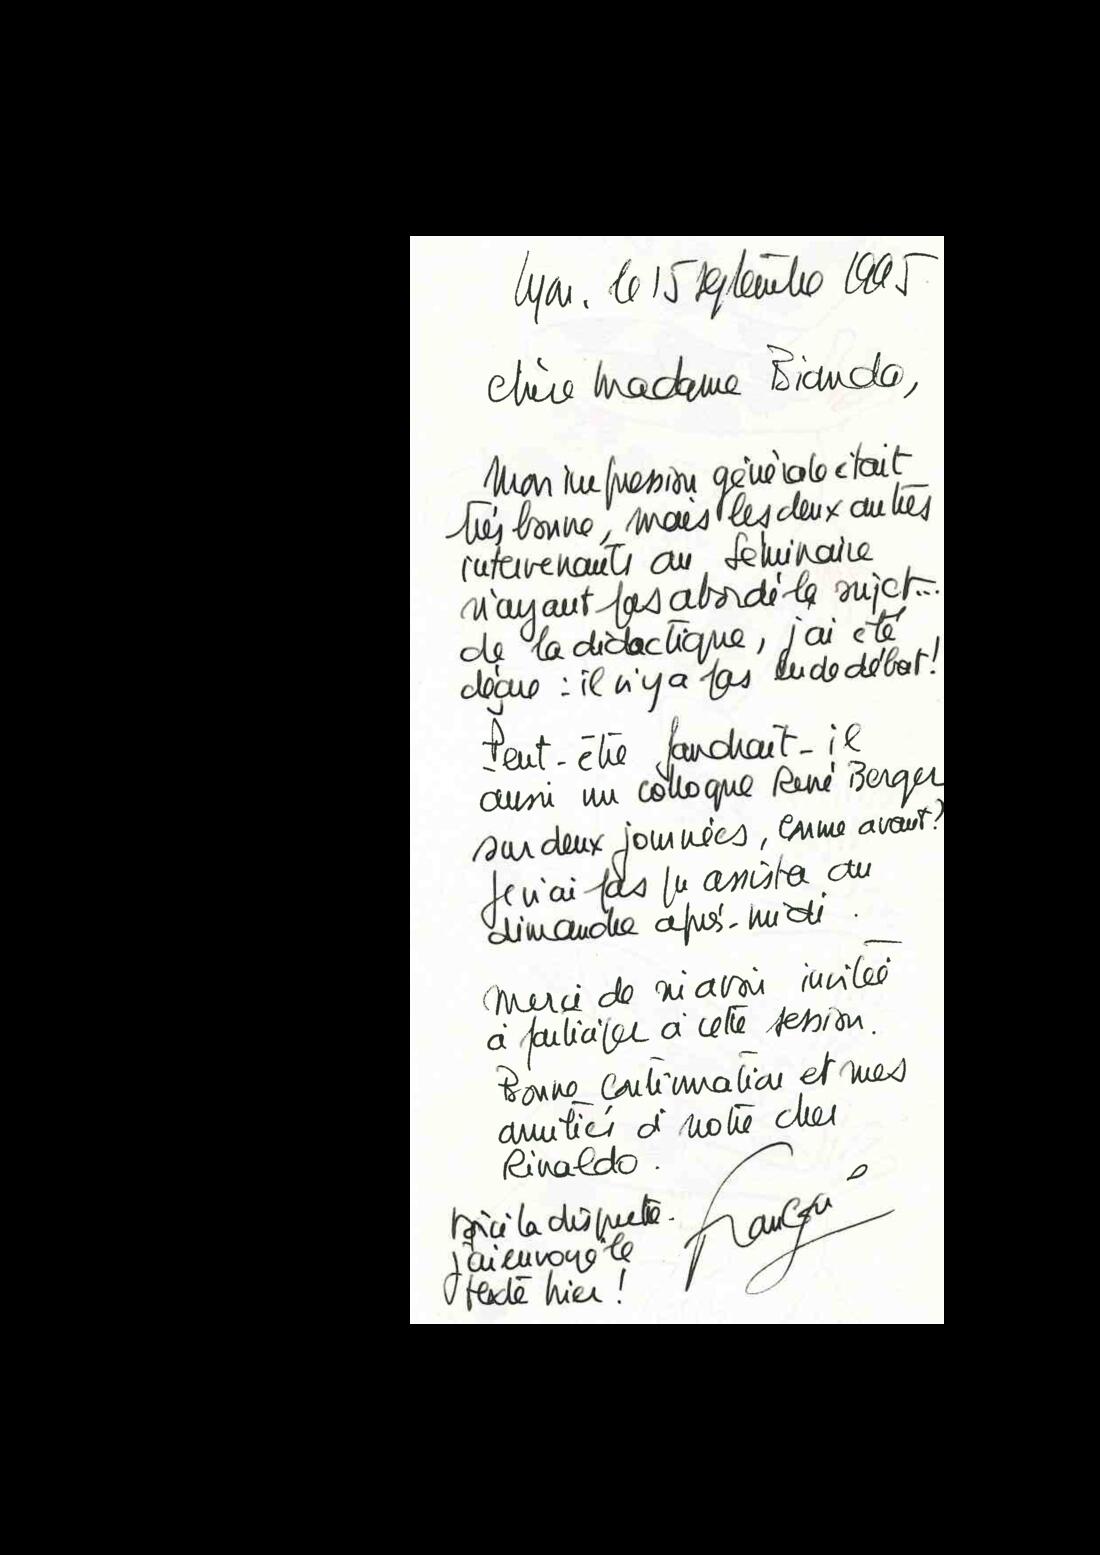 Lyon, le 15 septembre 1995
Chère Madame Bianda,
Mon impression générale était
très bonne, mais les deux autres
intervenants au Séminaire
n'ayant pas abordé le sujet...
de la didactique, j'ai été
déçue : il n'y a pas eu de débat !
Peut-être faudrait-il
aussi un colloque René Berger
sur deux journées, comme avant ?
Je n'ai pas pu assister au
dimanche après-midi.
Merci de m'avoir invitée
à participer à cette session.
Bonne continuation et mes
amitiés à notre cher
Rinaldo.
Voici la disquette.
j'ai envoyé le
texte hier !